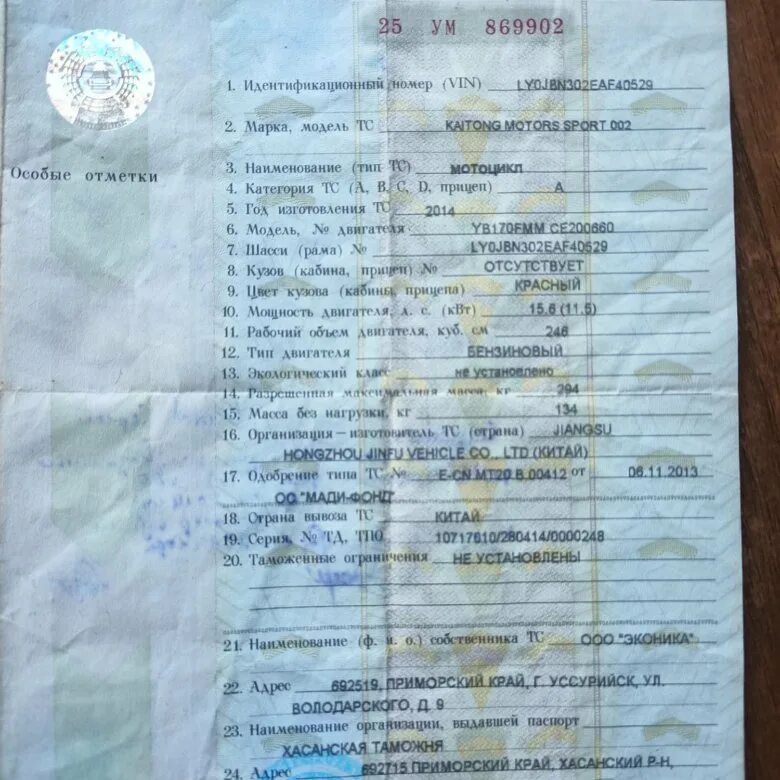 25 УМ 869902
1. Идентификационный номер (VIN) LY0JBN302EAF40529
2. Марка, модель ТС KAITONG MOTORS SPORT 002
Особые отметки
3. Наименование (тип ТС) МОТОЦИКЛ
4. Категория ТС (A, B, C, D, прицеп) A
5. Год изготовления ТС 2014
6. Модель, № двигателя YB170FMM CE200660
7. Шасси (рама) № LY0JBN302EAF40529
8. Кузов (кабина, прицеп) № ОТСУТСТВУЕТ
9. Цвет кузова (кабины, прицепа) КРАСНЫЙ
10. Мощность двигателя, л. с. (кВт) 15.6 (11.5)
11. Рабочий объем двигателя, куб. см 246
12. Тип двигателя БЕНЗИНОВЫЙ
13. Экологический класс не установлено
14. Разрешенная максимальная масса, кг 294
15. Масса без нагрузки, кг 134
16. Организация–изготовитель ТС (страна) JIANGSU
HONGZHOU JINFU VEHICLE CO., LTD (КИТАЙ)
17. Одобрение типа ТС № E-CN.MT20.B.00412 от 06.11.2013
ОО "МАДИ-ФОНД"
18. Страна вывоза ТС КИТАЙ
19. Серия, № ТД, ТПО 10717010/280414/0000248
20. Таможенные ограничения НЕ УСТАНОВЛЕНЫ
21. Наименование (ф. и. о.) собственника ТС ООО "ЭКОНИКА"
22. Адрес 692519, ПРИМОРСКИЙ КРАЙ, Г. УССУРИЙСК, УЛ.
ВОЛОДАРСКОГО, Д. 9
23. Наименование организации, выдавшей паспорт
ХАСАНСКАЯ ТАМОЖНЯ
24. Адрес 692715 ПРИМОРСКИЙ КРАЙ, ХАСАНСКИЙ Р-Н,